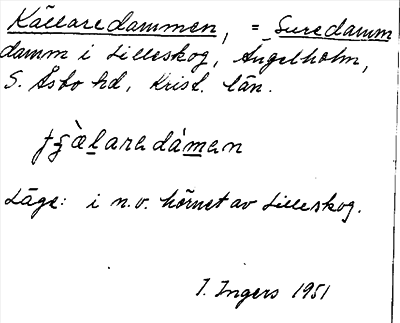 Källaredammen, = Suredamm
damm i Lilleskog, Ängelholm,
S. Åsbo hd, Krist. län.
Läge: i n.v. hörnet av Lilleskog.
I. Ingers 1951